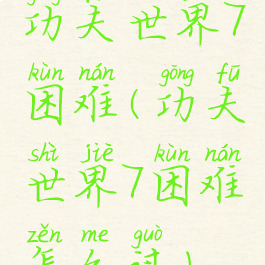 功夫世界7
kùn nán gōng fū
困难(功夫
shì jiē kùn nán
世界7困难
zěn me guò
怎么过)